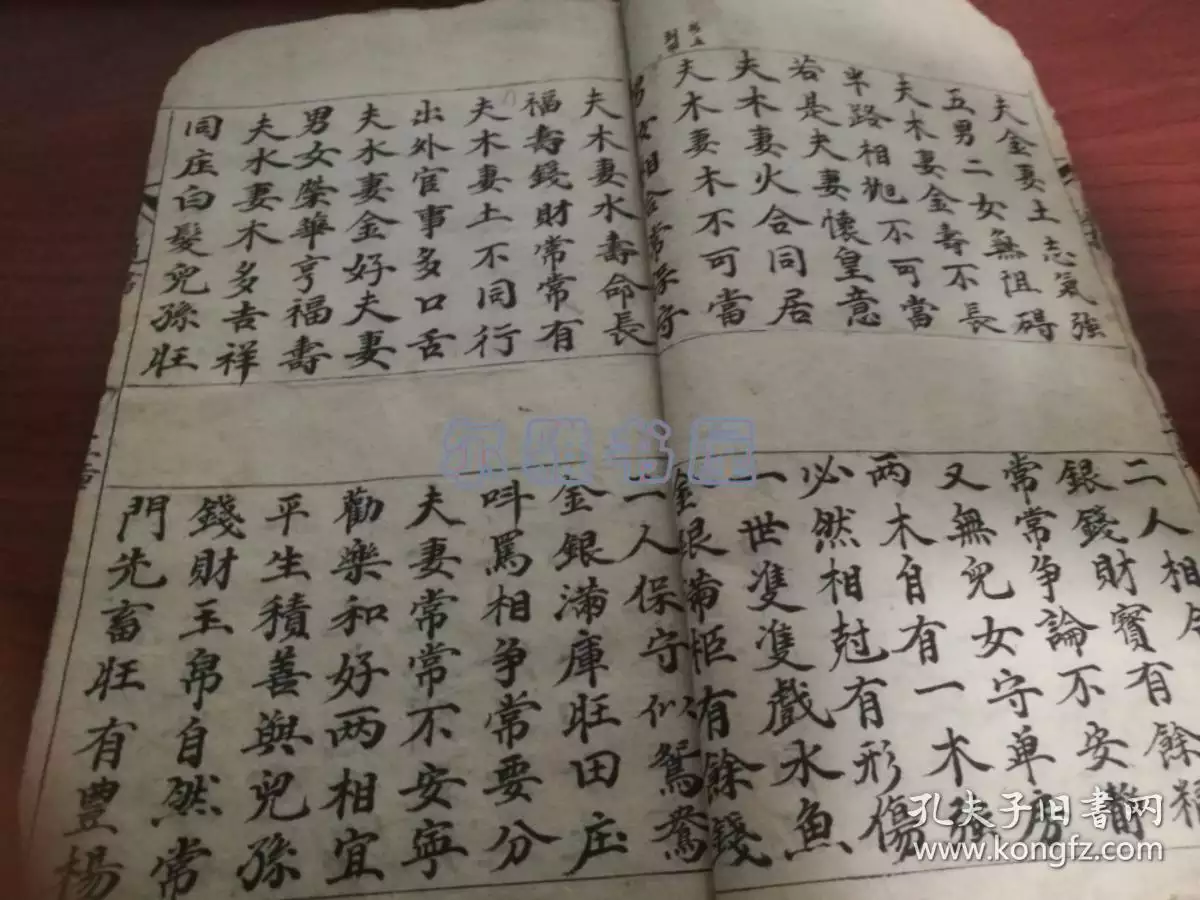 夫金妻土志氣強
五男二女無阻碍
夫木妻金壽不長
半路相尅不可當
若是夫妻懷皇意
夫木妻火合同居
夫木妻木不可當
夫木妻水壽命長
福壽錢財常常有
夫木妻土不同行
出外官事多口舌
夫水妻金好夫妻
男女榮華亨福壽
夫水妻木多吉祥
同庄白髮兒孫旺
二人相
銀錢財寶有餘糧
常常争論不安静
又無兒女守单房
两木自有一木強
必然相尅有形傷
一世隻隻戲水魚
金銀滿柜有餘錢
二人保守似鴛鴦
金銀滿庫旺田庄
呌罵相争常要分
夫妻常常不安寧
勸樂和好两相宜
平生積善與兒孫
錢財玉帛自然常
門先畜旺有豊楊
尔雅书屋
孔夫子旧書网
www.kongfz.com